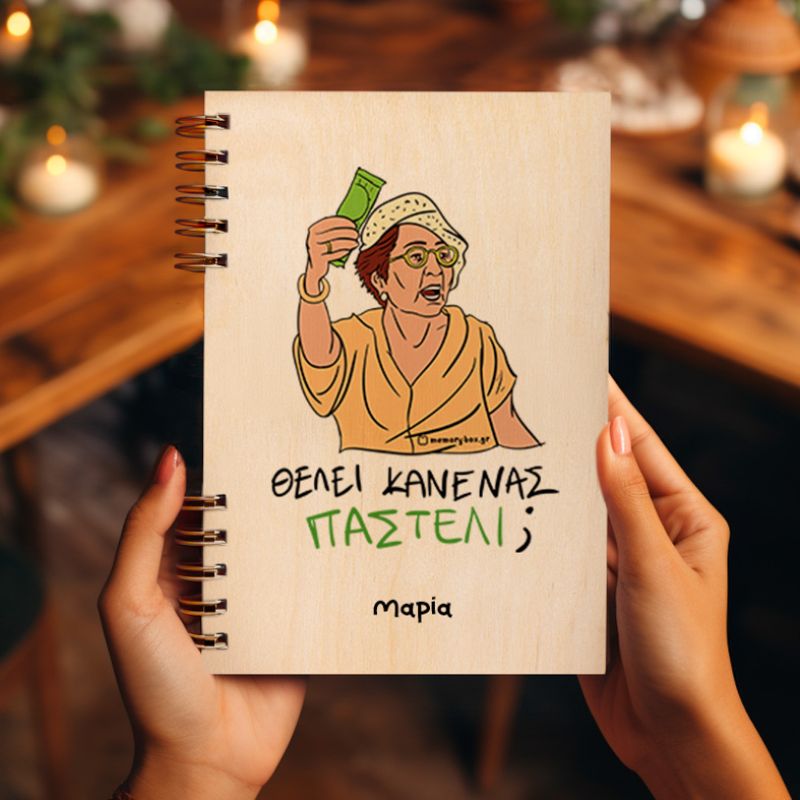 memorybox.gr
ΘΕΛΕΙ ΚΑΝΕΝΑΣ
ΠΑΣΤΕΛΙ;
Μαρία